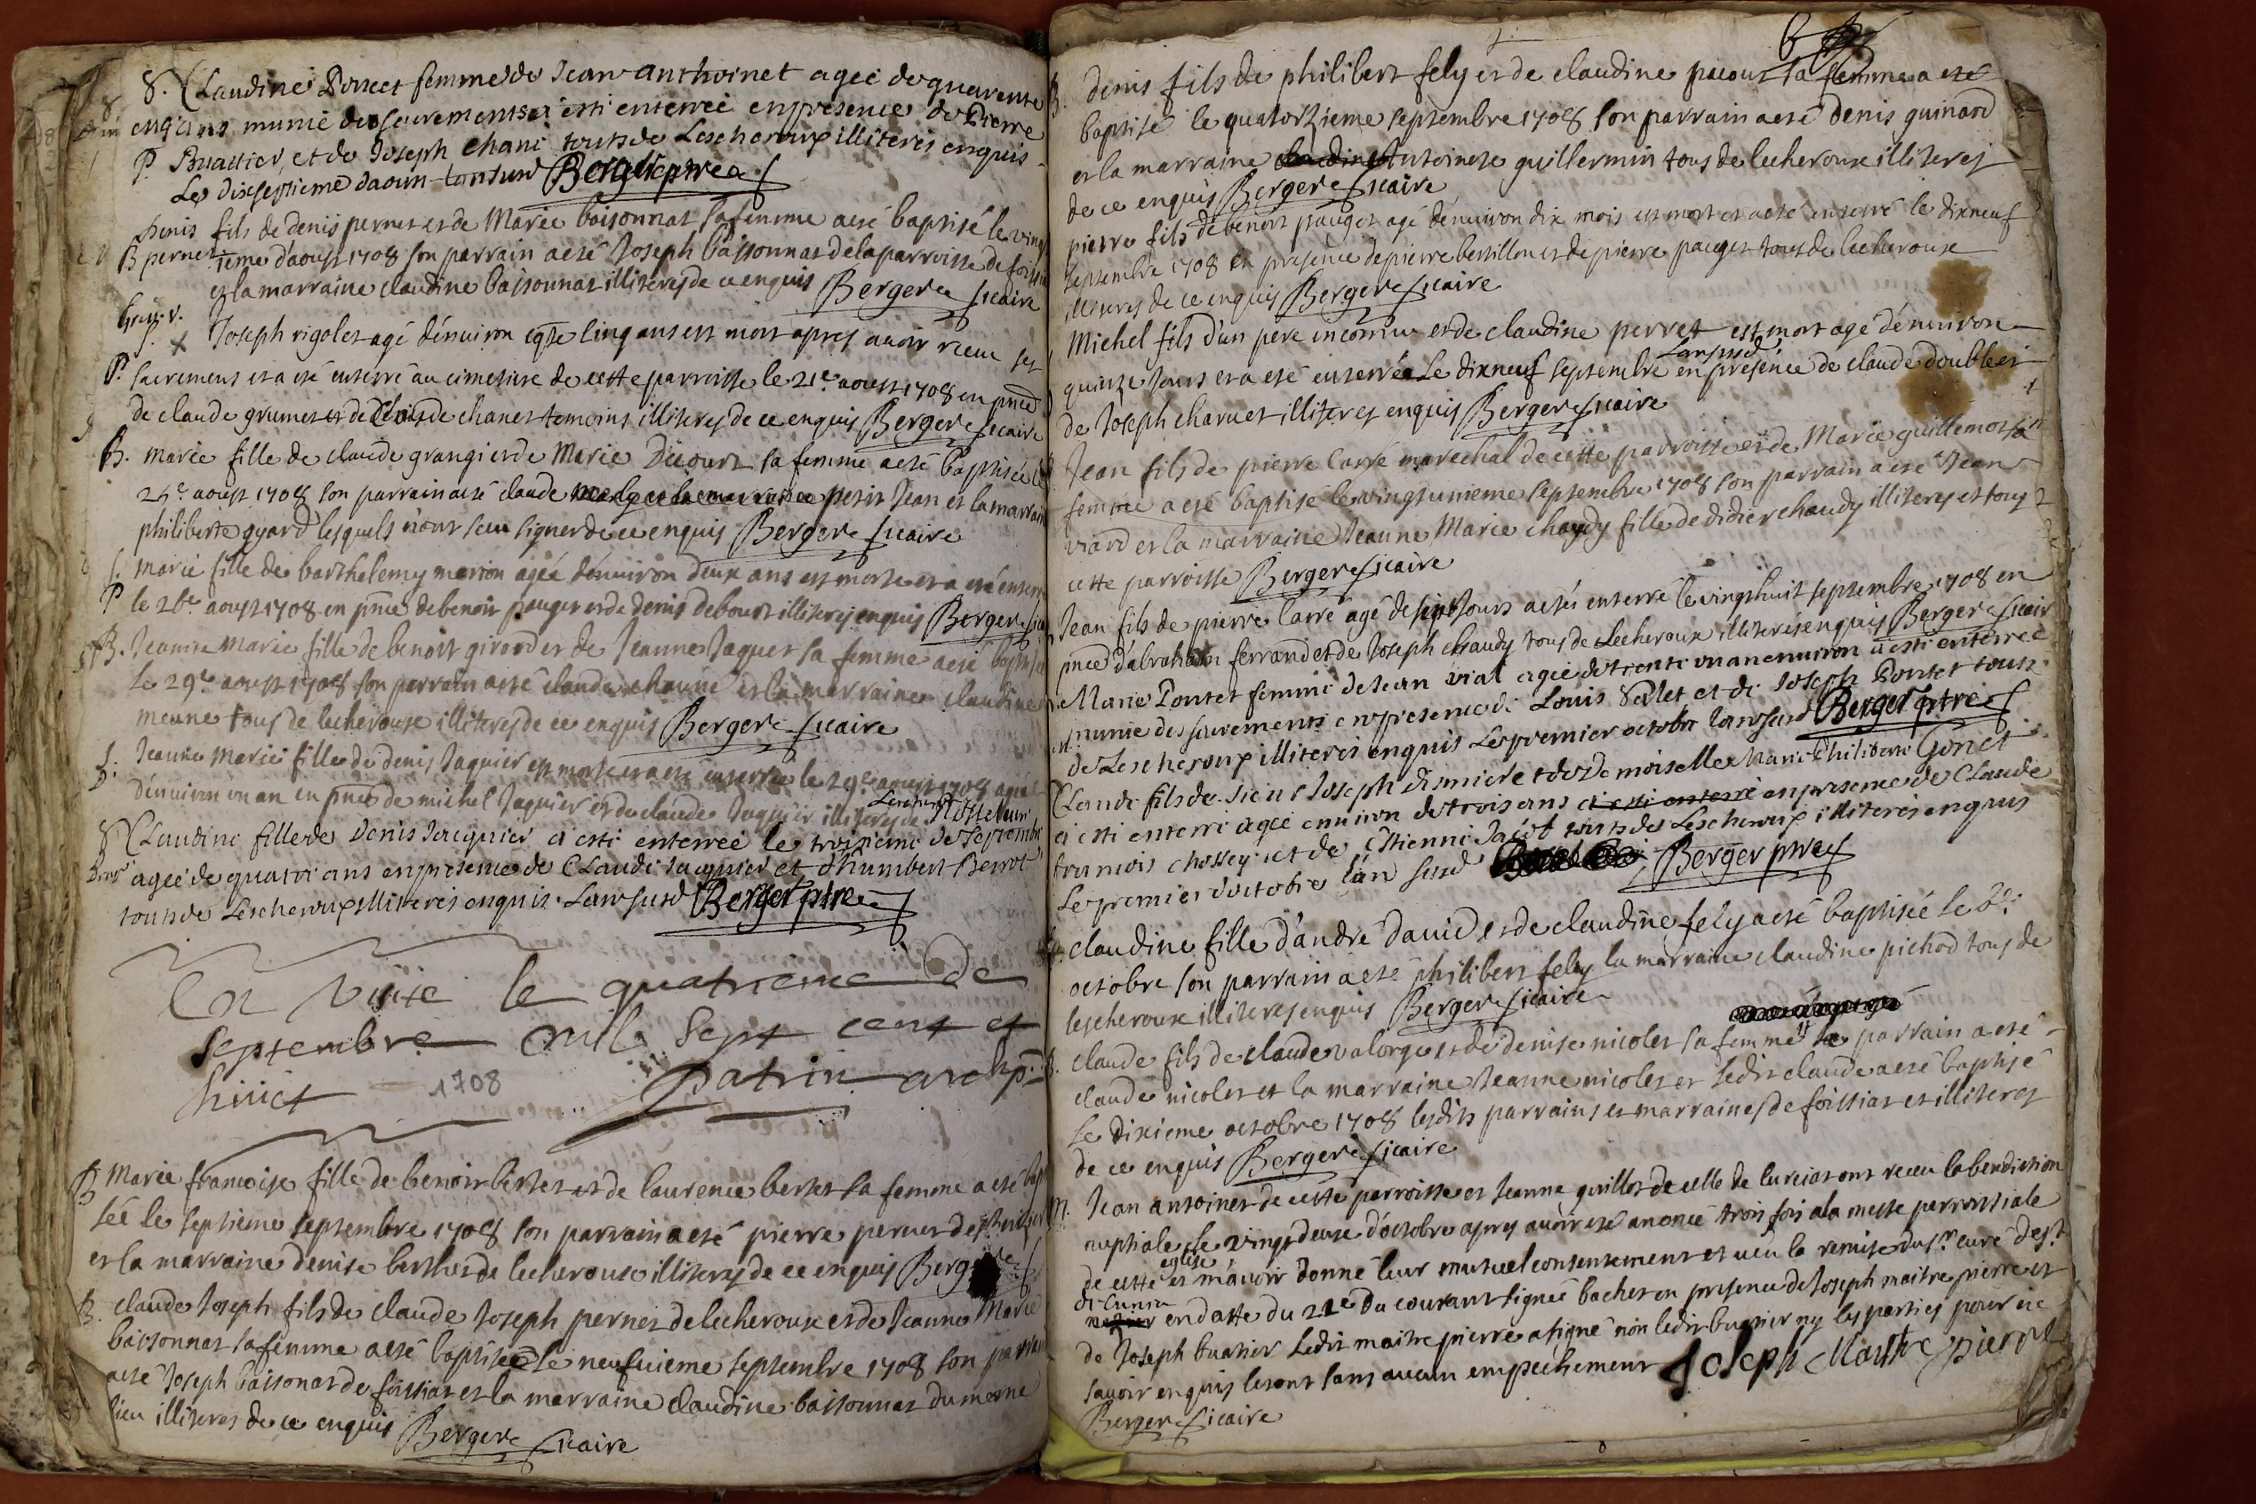 8. Claudine Poncet femme de Jean anthoinet agee de quarente
cinq ans munie des sacrements a esti enterreé en presence de Pierre
P. Buattier, et de Joseph Chani touts de Lescheroux illiteres enquis
Le dixseptieme daoun lan susd Berger ptre
Denis fils de denis pernet et de Marie baissonnat sa femme a esté baptisé le ving
B pernet tieme d'aoust 1708 son parrain a esté Joseph baissonnat de la parroisse de foissia
et la marraine claudine baissonnat illiteres de ce enquis Berger vicaire
Joseph rigolet agé d'enuiron cinq ans est mort apres auoir receu ses
P. sacremens et a esté enterré au cimetiere de cette parroisse le 21e aoust 1708 en pnce
de claude grumet et de Chanet temoins illiteres de ce enquis Berger vicaire
B. marie fille de claude grangier de Marie Dicourt sa femme a esté baptisée le
aoust 1708 son parrain a esté claude petit Jean et la marraine
philiberte gyard lesquels n'ont sceu signer de ce enquis Berger vicaire
f. marie fille de barthelemy marion agée d'enuiron deux ans est morte et a esté enterr
P le 26e aoust 1708 en pnce de benoit pauget et de denis debourt illiteres enquis Berger vicaire
B. Jeanne Marie fille de benoit girard et de Jeanne Jaquet sa femme a esté baptisée
Le 29e aoust 1708 son parrain a esté claude chauné et la marraine claudine
meune tous de lecheroux illiteres de ce enquis Berger vicaire
f. Jeanne Marie fille de denis Jaquier est morte et a esté enterrée le 29e aoust 1708 agée
P d'enuiron un an en pnce de michel Jaquier et de claude Jaquier illiteres de Lescheroux
8 Claudine fille de Denis Jacquier a esti enterreé le troisieme de Septembre
agee de quatre ans en presence de Claude Jacquier et d'humbert Perrot
touts de Lescheroux illiteres enquis Lan susd Berger ptre
En visite le quatrieme de
septembre mille sept cent et
huict 1708 patrin archip.
B Marie francoise fille de benoit bertet et de laurence bertet sa femme a esté bap
sée le septieme septembre 1708 son parrain a esté pierre pernet de
et la marraine denise berthet de lecheroux illiteres de ce enquis Berger
B. claude Joseph fils de claude Joseph pernet de lecheroux et de Jeanne Marie
baissonnat sa femme a esté baptisé le neufuieme septembre 1708 son parrain
a esté Joseph baissonat de foissiat et la marraine claudine baissonnat du mesme
lieu illiteres de ce enquis Berger vicaire
6
B. denis fils de philibert fely et de claudine pacout sa femme a esté
baptisé le quatorzieme septembre 1708 son parrain a esté denis guinard
et la marraine Antoinete guillermin tous de lecheroux illiteres
de ce enquis Berger vicaire
pierre fils de benoit pauget agé d'enuiron dix mois est mort et a esté enterré le dixneuf
septembre 1708 en presence de pierre bertillon et de pierre pauget tous de lecheroux
illiteres de ce enquis Berger vicaire
Michel fils d'un pere inconnu et de claudine perret est mort agé d'enuiron
quinze Jours et a esté enterré Le dixneuf septembre Lan susd en presence de claude doublet
de Joseph charuet illiteres enquis Berger vicaire
Jean fils de pierre Carré marechal de cette parroisse et de Marie guillemot sa
femme a esté baptisé le vingtunieme septembre 1708 son parrain a esté Jean
viard et la marraine Jeanne Marie chaydy fille de didier chaudy illiteres et tous
cette parroisse Berger vicaire
Jean fils de pierre Carré agé de sept Jours a esté enterré le vingthuit septembre 1708 en
pnce d'abraham ferrand et de Joseph chaudy tous de Lecheroux illiteres enquis Berger vicair
Marie Pontet femme de Jean vial agee de trente un an enuiron a esti enterreé
munie des sacrements en presence de Louis Valet et de Joseph Pontet touts
de Lescheroux illiteres enquis Le premier octobre Lan susd Berger ptre
Claude fils de sieur Joseph et de Demoiselle Marie Philiberte Gonet
a esti enterré ageé enuiron de trois ans a esti enterré en presence de Claude
francois Chossey et de Estienne Jacob touts de Lescheroux illiteres enquis
Le premier d'octobre l'an susd Berger ptre
claudine fille d'andré Dauid et de claudine fely a esté baptisée le
octobre son parrain a esté philibert fely la marraine claudine pichod tous de
lescheroux illiteres enquis Berger vicaire
B. claude fils de claude valorge et de denise nicolet sa femme le parrain a esté
claude nicolet et la marraine Jeanne nicolet et ledit claude a esté baptisé
Le dixieme octobre 1708 lesdits parrains et marraines de foissiat et illiteres
de ce enquis Berger vicaire
M. Jean antoinet de cette parroisse et Jeanne guillot de celle de curciat ont receu la benediction
nuptiale Le vingt deux d'octobre apres auoir esté anoncé trois fois a la messe parroissiale
de cette eglise et m'auoir donné leur mutuel consentement et ueu la remise du sr curé dest
endatte du 21e du courant signée bachet en presence de Joseph maitre pierre et
de Joseph buatier Ledit maitre pierre a signé non ledit buatier ny les parties pour ne
sauoir enquis le sont sans aucun empechement Joseph Maistre pierre
Berger vicaire